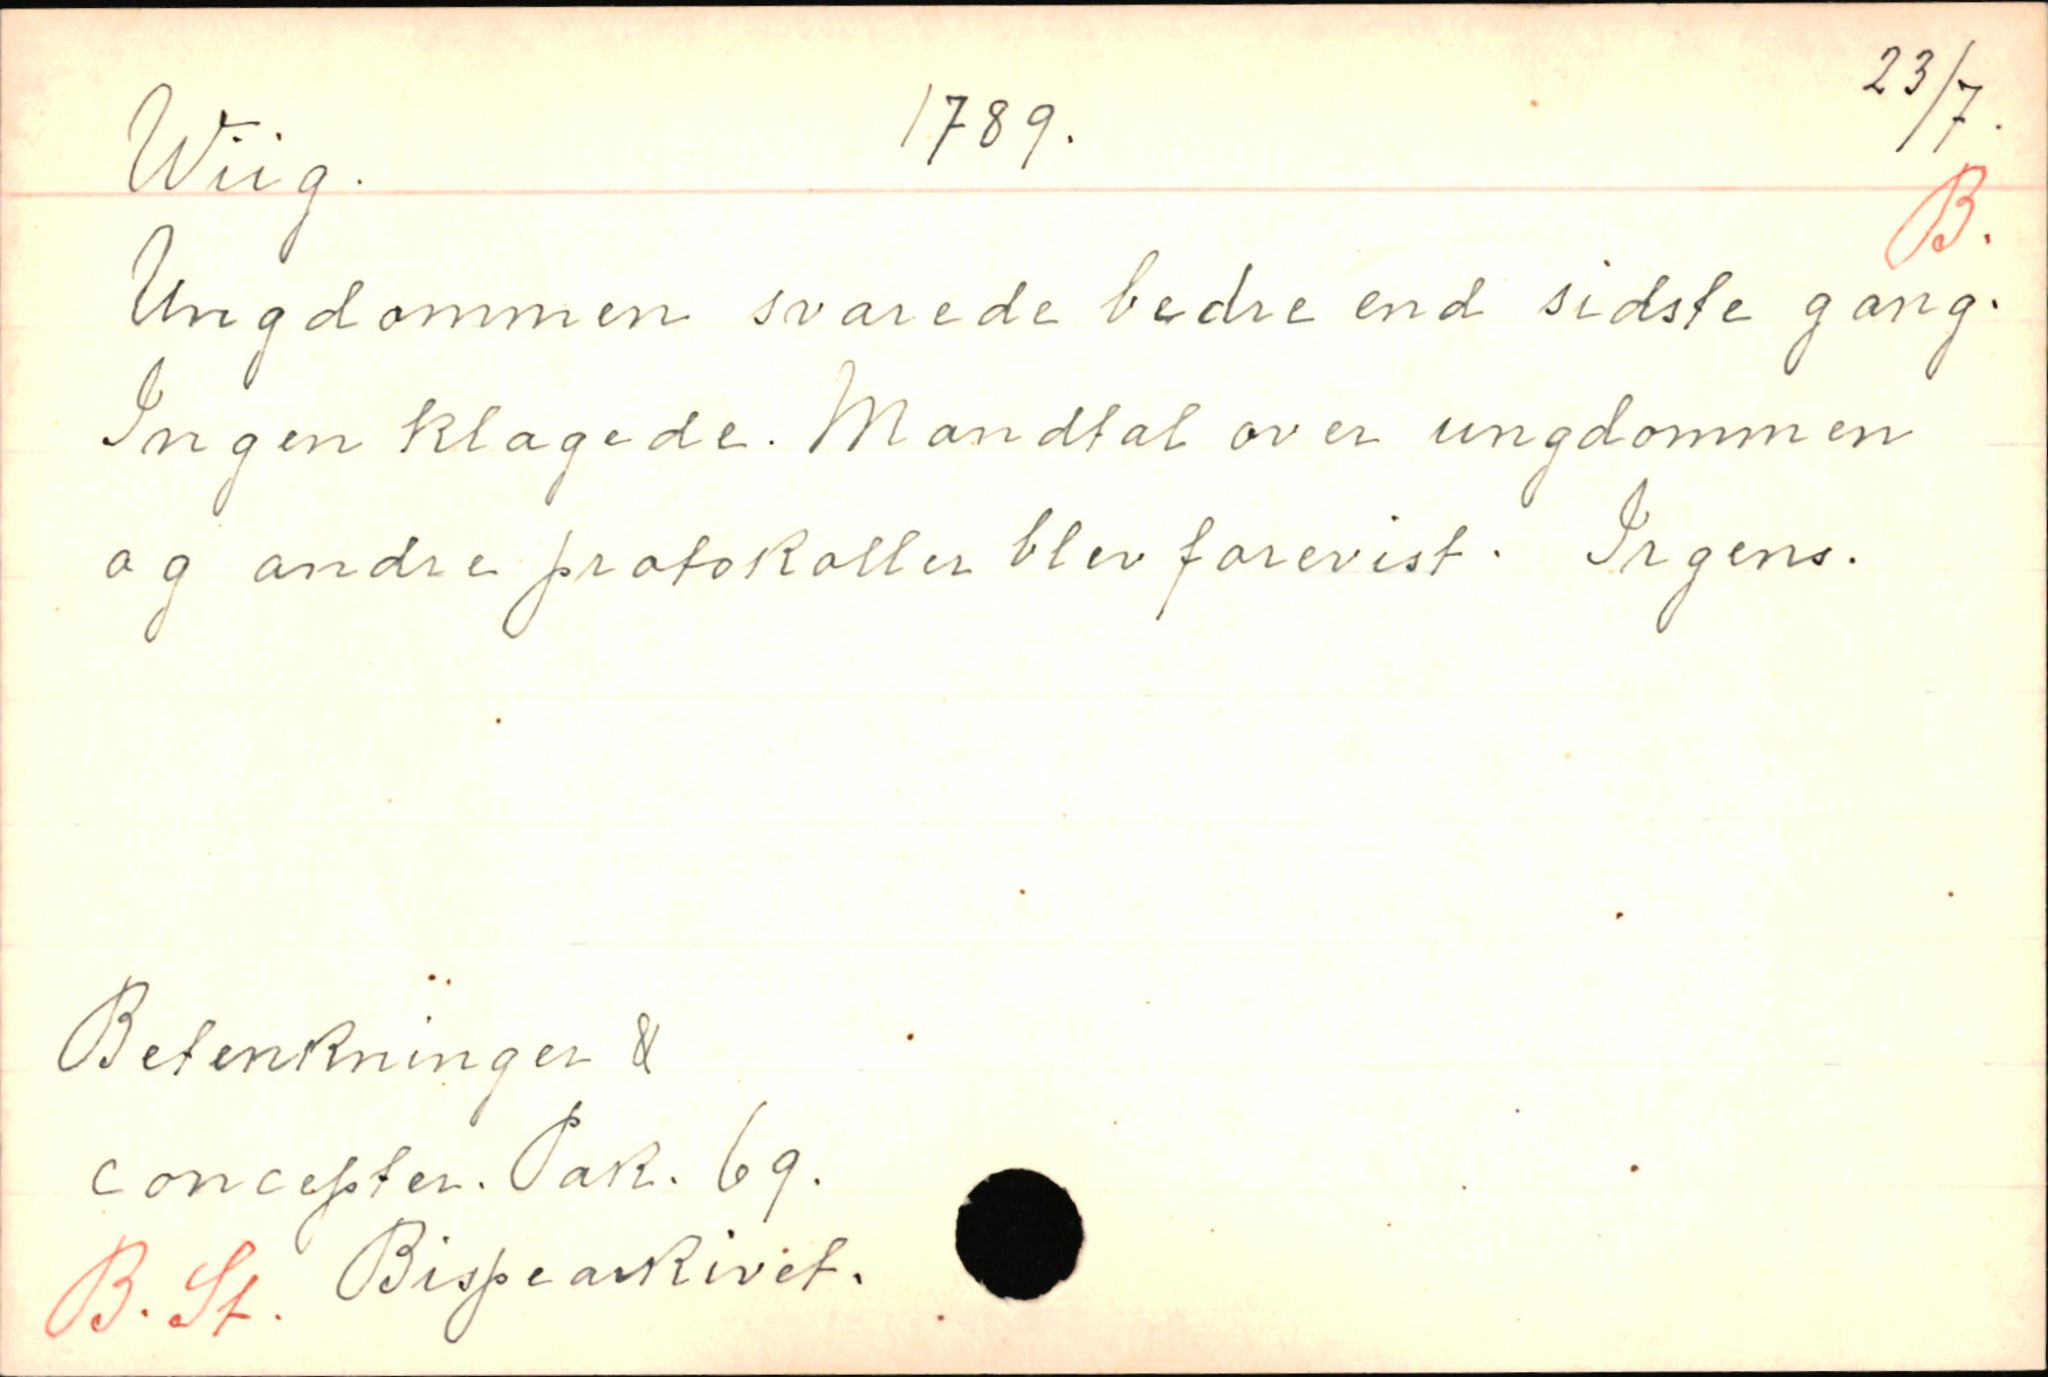 Wiig. 1789. 23/7.
B.
Ungdommen svarede bedre end sidste gang.
Ingen klagede. Mandtal over ungdommen
og andre protokoller blev forevist. Irgens.
Betenkninger &
concepter. Pak. 69.
B. St. Bispearkivet.